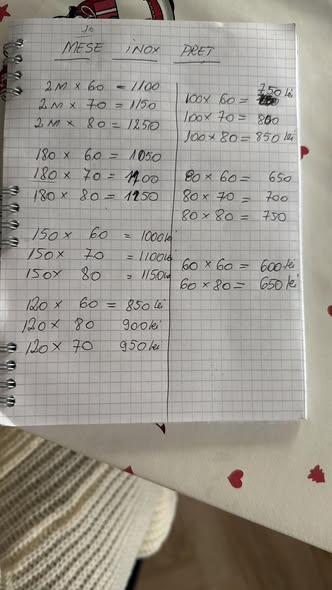 MESE INOX PRET
2M x 60 = 1100
2M x 70 = 1150
2M x 80 = 1250
180 x 60 = 1050
180 x 70 = 1100
180 x 80 = 1150
150 x 60 = 1000 lei
150 x 70 = 1100 lei
150 x 80 = 1150 lei
120 x 60 = 850 lei
120 x 80 900 lei
120 x 70 950 lei
750 lei
100 x 60 =
100 x 70 = 800
100 x 80 = 850 lei
80 x 60 = 650
80 x 70 = 700
80 x 80 = 750
60 x 60 = 600 lei
60 x 80 = 650 lei